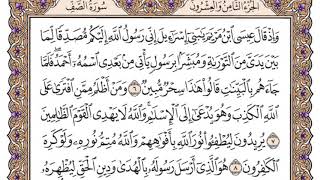 الجزء الثامن والعشرون سورة الصف
وَإِذْ قَالَ عِيسَى ابْنُ مَرْيَمَ يَٰبَنِىٓ إِسْرَٰٓءِيلَ إِنِّى رَسُولُ ٱللَّهِ إِلَيْكُم مُّصَدِّقًا لِّمَا
بَيْنَ يَدَىَّ مِنَ ٱلتَّوْرَىٰةِ وَمُبَشِّرًۢا بِرَسُولٍ يَأْتِى مِنۢ بَعْدِى ٱسْمُهُۥٓ أَحْمَدُ فَلَمَّا
جَآءَهُم بِٱلْبَيِّنَٰتِ قَالُوا۟ هَٰذَا سِحْرٌ مُّبِينٌ ٦ وَمَنْ أَظْلَمُ مِمَّنِ ٱفْتَرَىٰ عَلَى
ٱللَّهِ ٱلْكَذِبَ وَهُوَ يُدْعَىٰٓ إِلَى ٱلْإِسْلَٰمِ وَٱللَّهُ لَا يَهْدِى ٱلْقَوْمَ ٱلظَّٰلِمِينَ
٧ يُرِيدُونَ لِيُطْفِـُٔوا۟ نُورَ ٱللَّهِ بِأَفْوَٰهِهِمْ وَٱللَّهُ مُتِمُّ نُورِهِۦ وَلَوْ كَرِهَ
ٱلْكَٰفِرُونَ ٨ هُوَ ٱلَّذِىٓ أَرْسَلَ رَسُولَهُۥ بِٱلْهُدَىٰ وَدِينِ ٱلْحَقِّ لِيُظْهِرَهُۥ